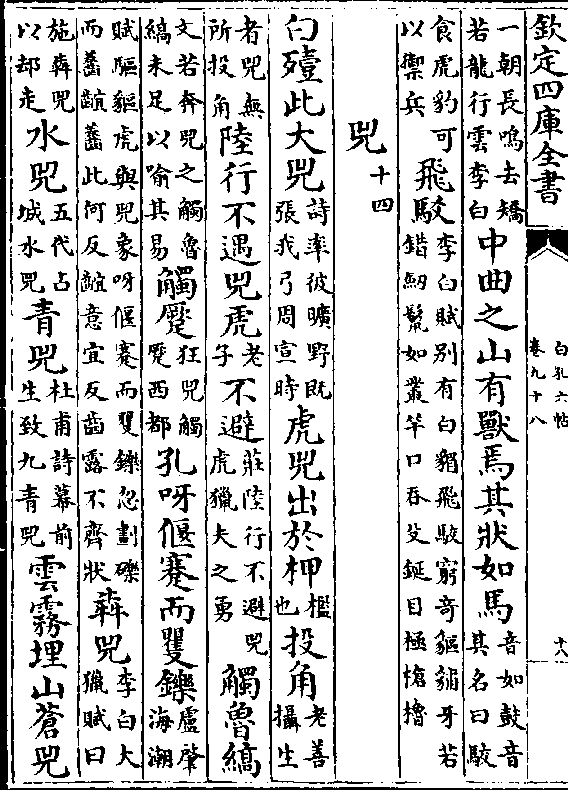 欽定四庫全書
白孔六帖
卷九十八
十八
一朝長鳴去矯
若龍行雲李白
中曲之山有獸焉其狀如馬
音如鼓音
其名曰駮
食虎豹可
以禦兵
飛駮
李白賦別有白貊飛駮窮奇貙牙若
錯劒鬛如叢竿口吞殳鋋目極槍櫓
兕十四
白殪此大兕
詩率彼曠野既
張我弓周宣時
虎兕出於柙
檻
也
投角
老善
攝生
者兕無
所投角
陸行不遇兕虎
老
子
不避
莊陸行不避兕
虎獵夫之勇
觸魯縞
文若奔兕之觸魯
縞未足以喻其易
觸蹷
狂兕觸
蹷西都
孔呀偃蹇而䨇鑠
盧肇
海潮
賦驅貙虎與兕象呀偃蹇而䨇鑠忽劃礫
而齹齖齹此何反齖意宜反齒露不齊狀
犇兕
李白大
獵賦曰
施犇兕
以却走
水兕
五代占
城水兕
青兕
杜甫詩幕前
生致九青兕
雲霧埋山蒼兕